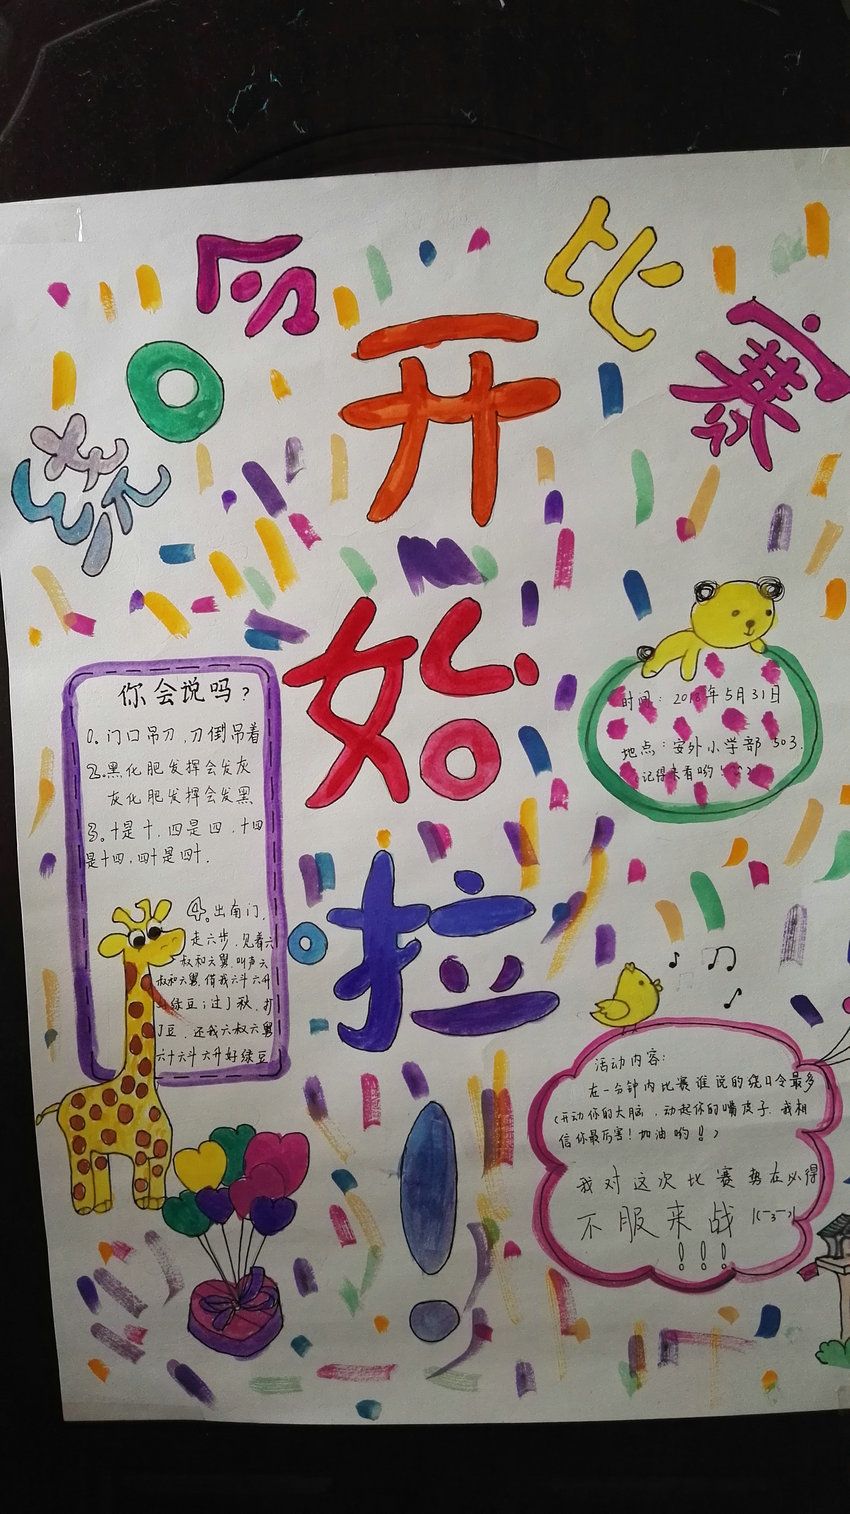 绕口令比赛
开
始
拉
！
你会说吗？
1。门口吊刀，刀倒吊着
2。黑化肥发挥会发灰
灰化肥发挥会发黑
3。十是十，四是四，十四
是十四，四十是四十。
④。出南门，
走六步，见着六
叔和六舅，叫声六
叔和六舅，借我六斗六升
绿豆；过了秋，打
了豆，还我六叔六舅
六十六斗六升好绿豆
时间：2018年5月31日
地点：安外小学部503.
（记得来看哟
活动内容：
在一分钟内比赛谁说的绕口令最多
（开动你的大脑，动起你的嘴皮子，我相
信你最厉害！加油哟！）
我对这次比赛势在必得
不服来战
！！！